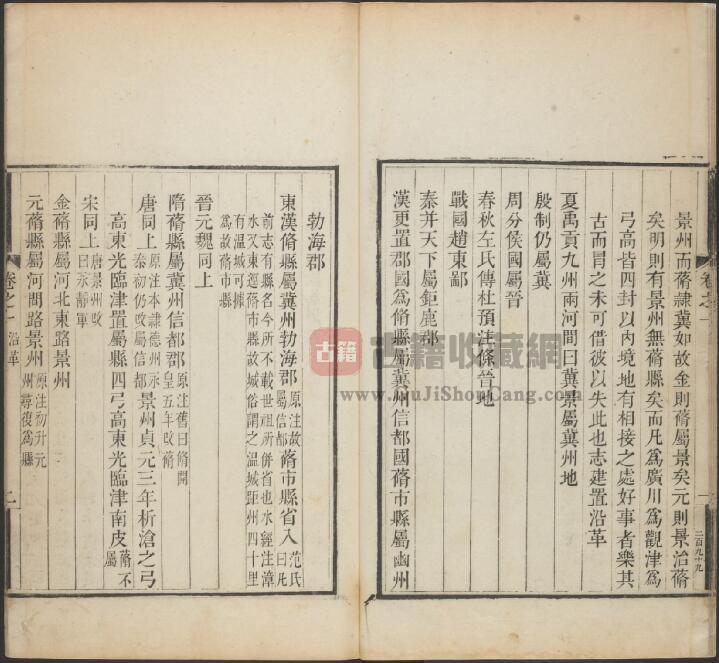 景州而蓨隸冀如故金則蓨屬景矣元則景治蓨
矣明則有景州無蓨縣矣而凡爲廣川爲觀津爲
弓高皆四封以內境地有相接之處好事者樂其
古而冒之未可借彼以失此也志建置沿革
夏禹貢九州兩河間曰冀景屬冀州地
殷制仍屬冀
周分侯國屬晉
春秋左氏傳杜預注條晉地
戰國趙東鄙
秦并天下屬鉅鹿郡
漢更置郡國爲脩縣屬冀州信都國蓨市縣屬幽州
卷之一
一
二百九十九
勃海郡
東漢脩縣屬冀州勃海郡原注故屬信都蓨市縣省入范氏曰凡
前志有縣名今所不載世祖所併省也水經注漳
水又東逕蓨市縣故城俗謂之温城距州四十里
有温城可據
爲故蓨市縣
晉元魏同上
隋蓨縣屬冀州信都郡原注舊曰脩開皇五年改蓨
唐同上原注本隸德州永泰初仍改屬信都景州貞元三年析滄之弓
高東光臨津置屬縣四弓高東光臨津南皮蓨不屬
宋同上唐景州改曰永靜軍
金蓨縣屬河北東路景州
元蓨縣屬河間路景州原注初升元州尋復爲縣
卷之一
沿革
二
古籍
古籍收藏网
www.GuJiShouCang.com